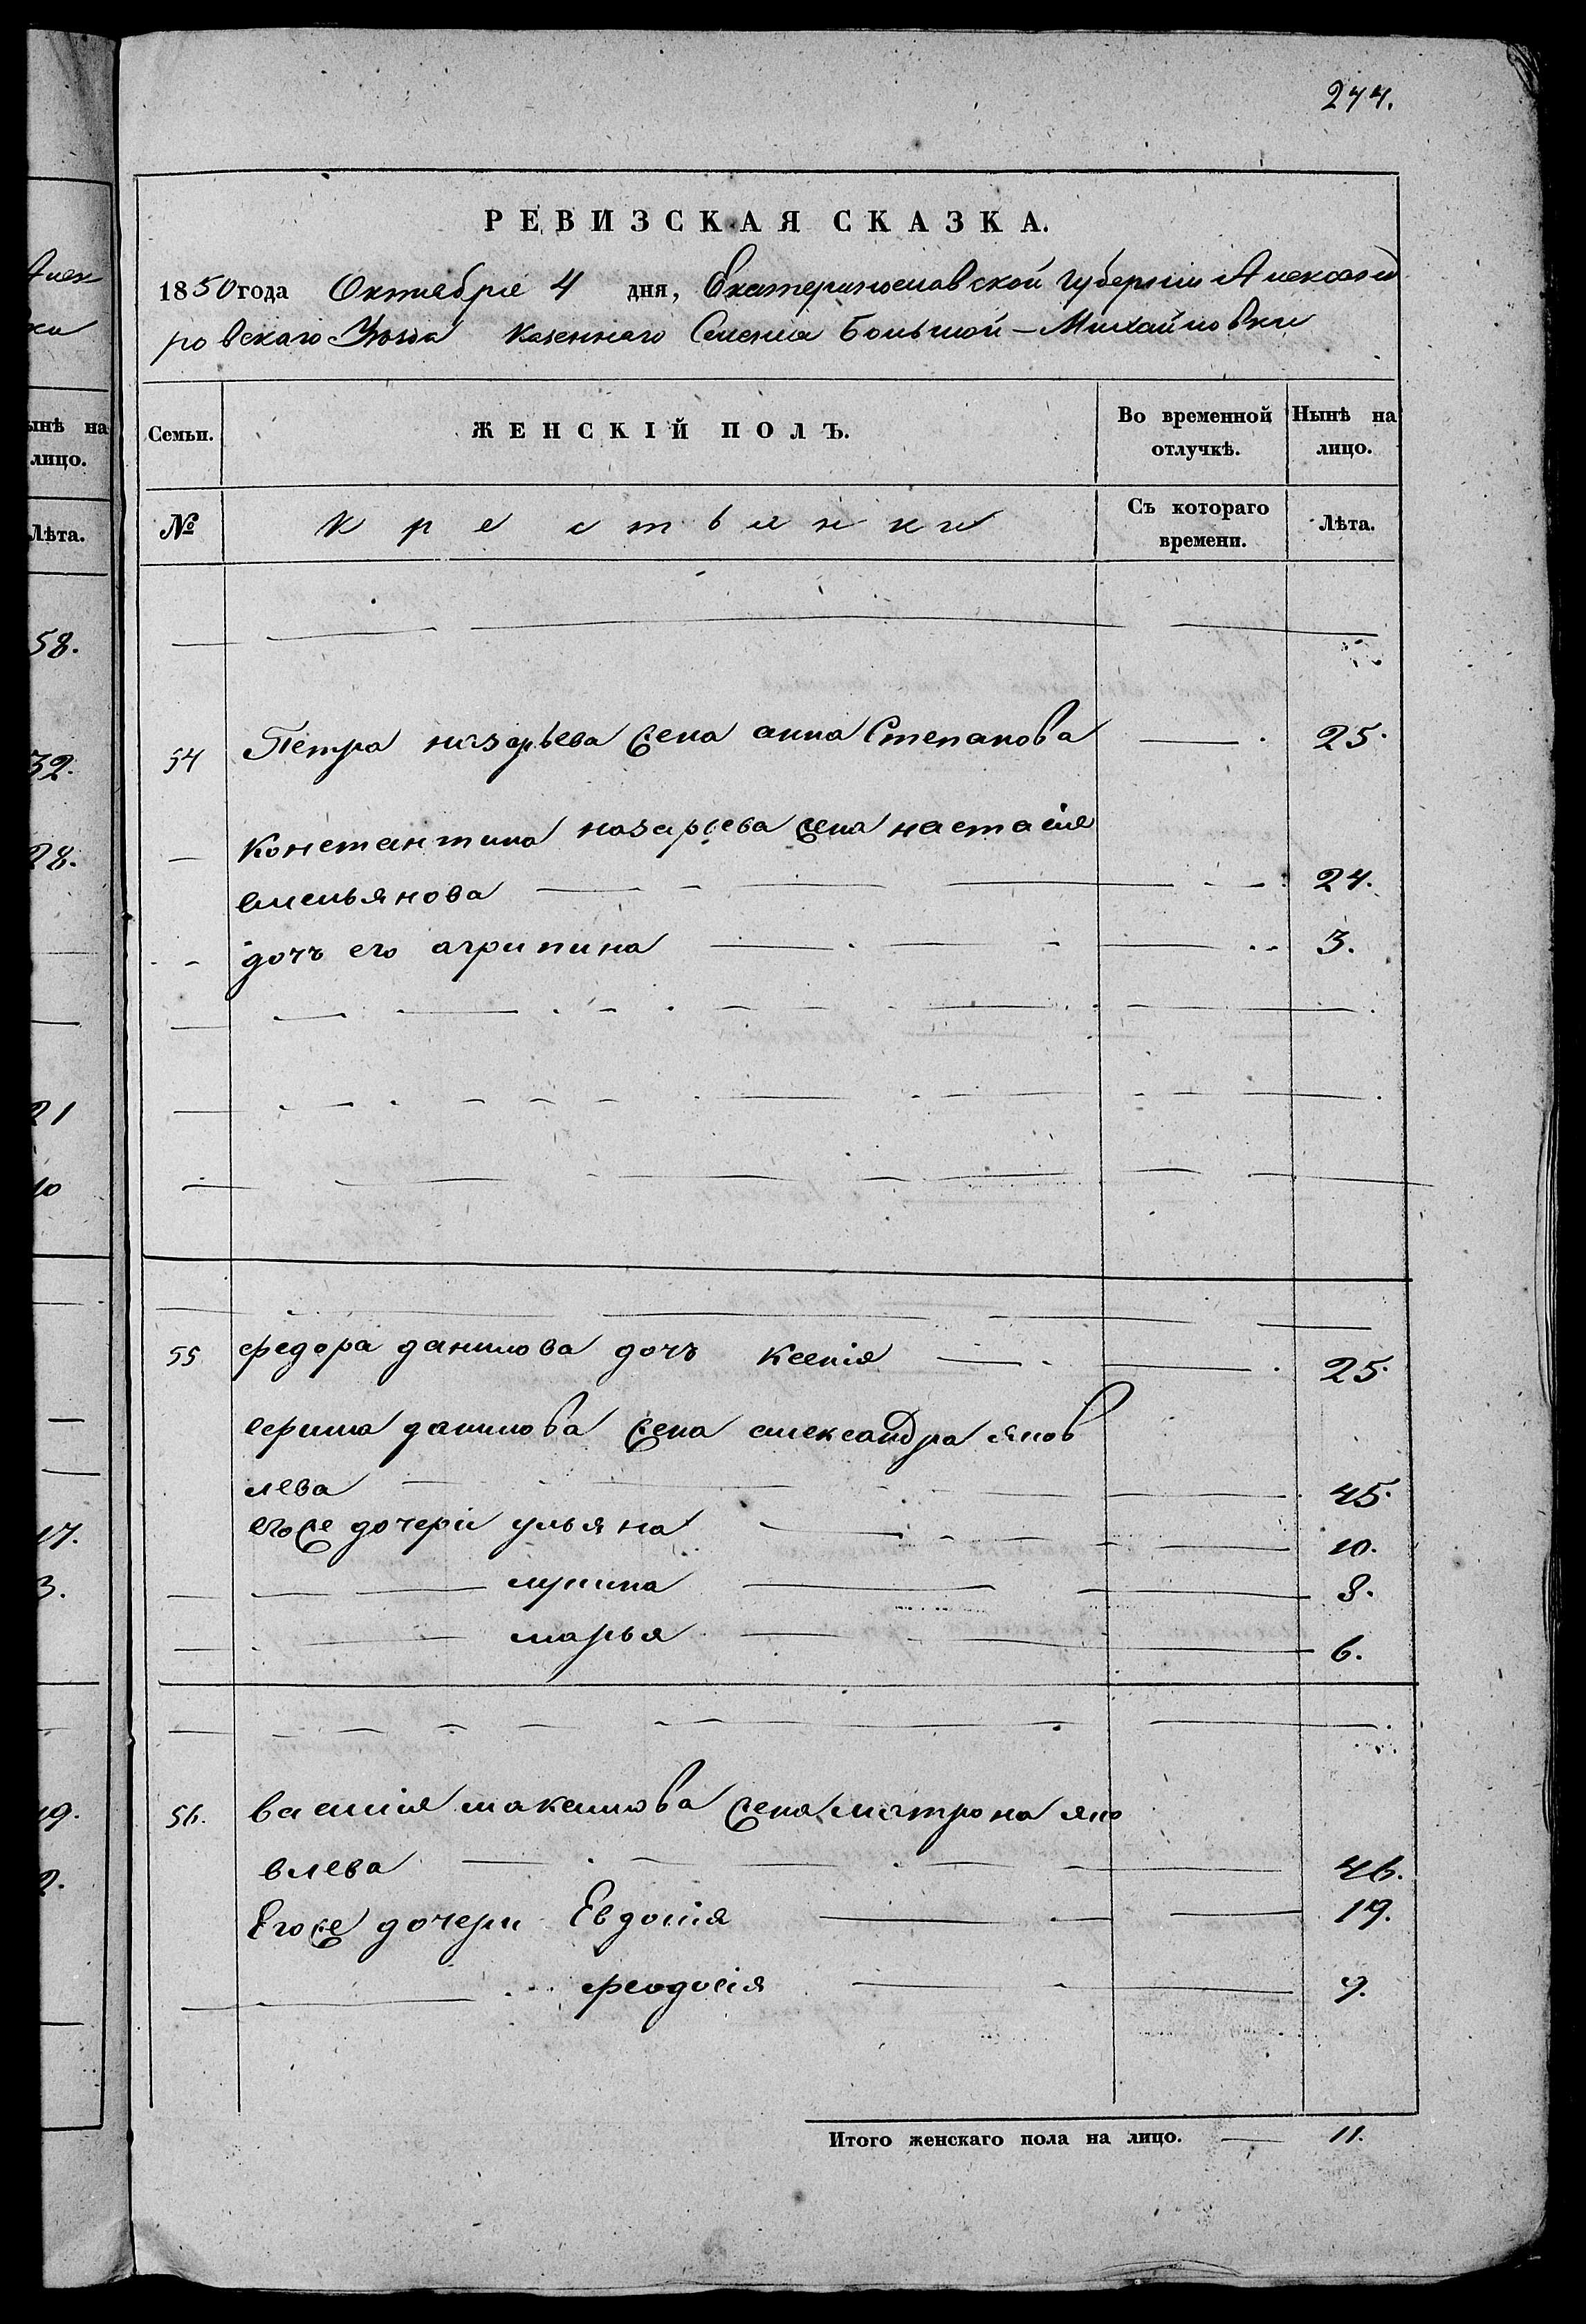 244.
РЕВИЗСКАЯ СКАЗКА.
1850 года Октября 4 дня, Екатеринославской губерніи Александ
ровскаго Уѣзда Казеннаго Селенія Большой-Михайловки
Семьи.
ЖЕНСКІЙ ПОЛЪ.
Во временной отлучкѣ.
Нынѣ на лицо.
№
Крестьянки
Съ котораго времени.
Лѣта.
54 Петра назарьева жена анна Степанова 25.
Константина назарьева жена настасія
емельянова 24.
дочъ его агрипина 3.
55 федора данилова дочъ Ксенія 25.
ефима данилова жена александра яков
лева 45.
егоже дочери ульяна 10.
ирина 8.
марья 6.
56. василія максимова жена матрона яко
влева 46.
Егоже дочери Евдокія 19.
феодосія 9.
Итого женскаго пола на лицо. 11.
ынѣ на
лицо.
Лѣта.
58.
32.
28.
21
10
17.
3.
19.
2.